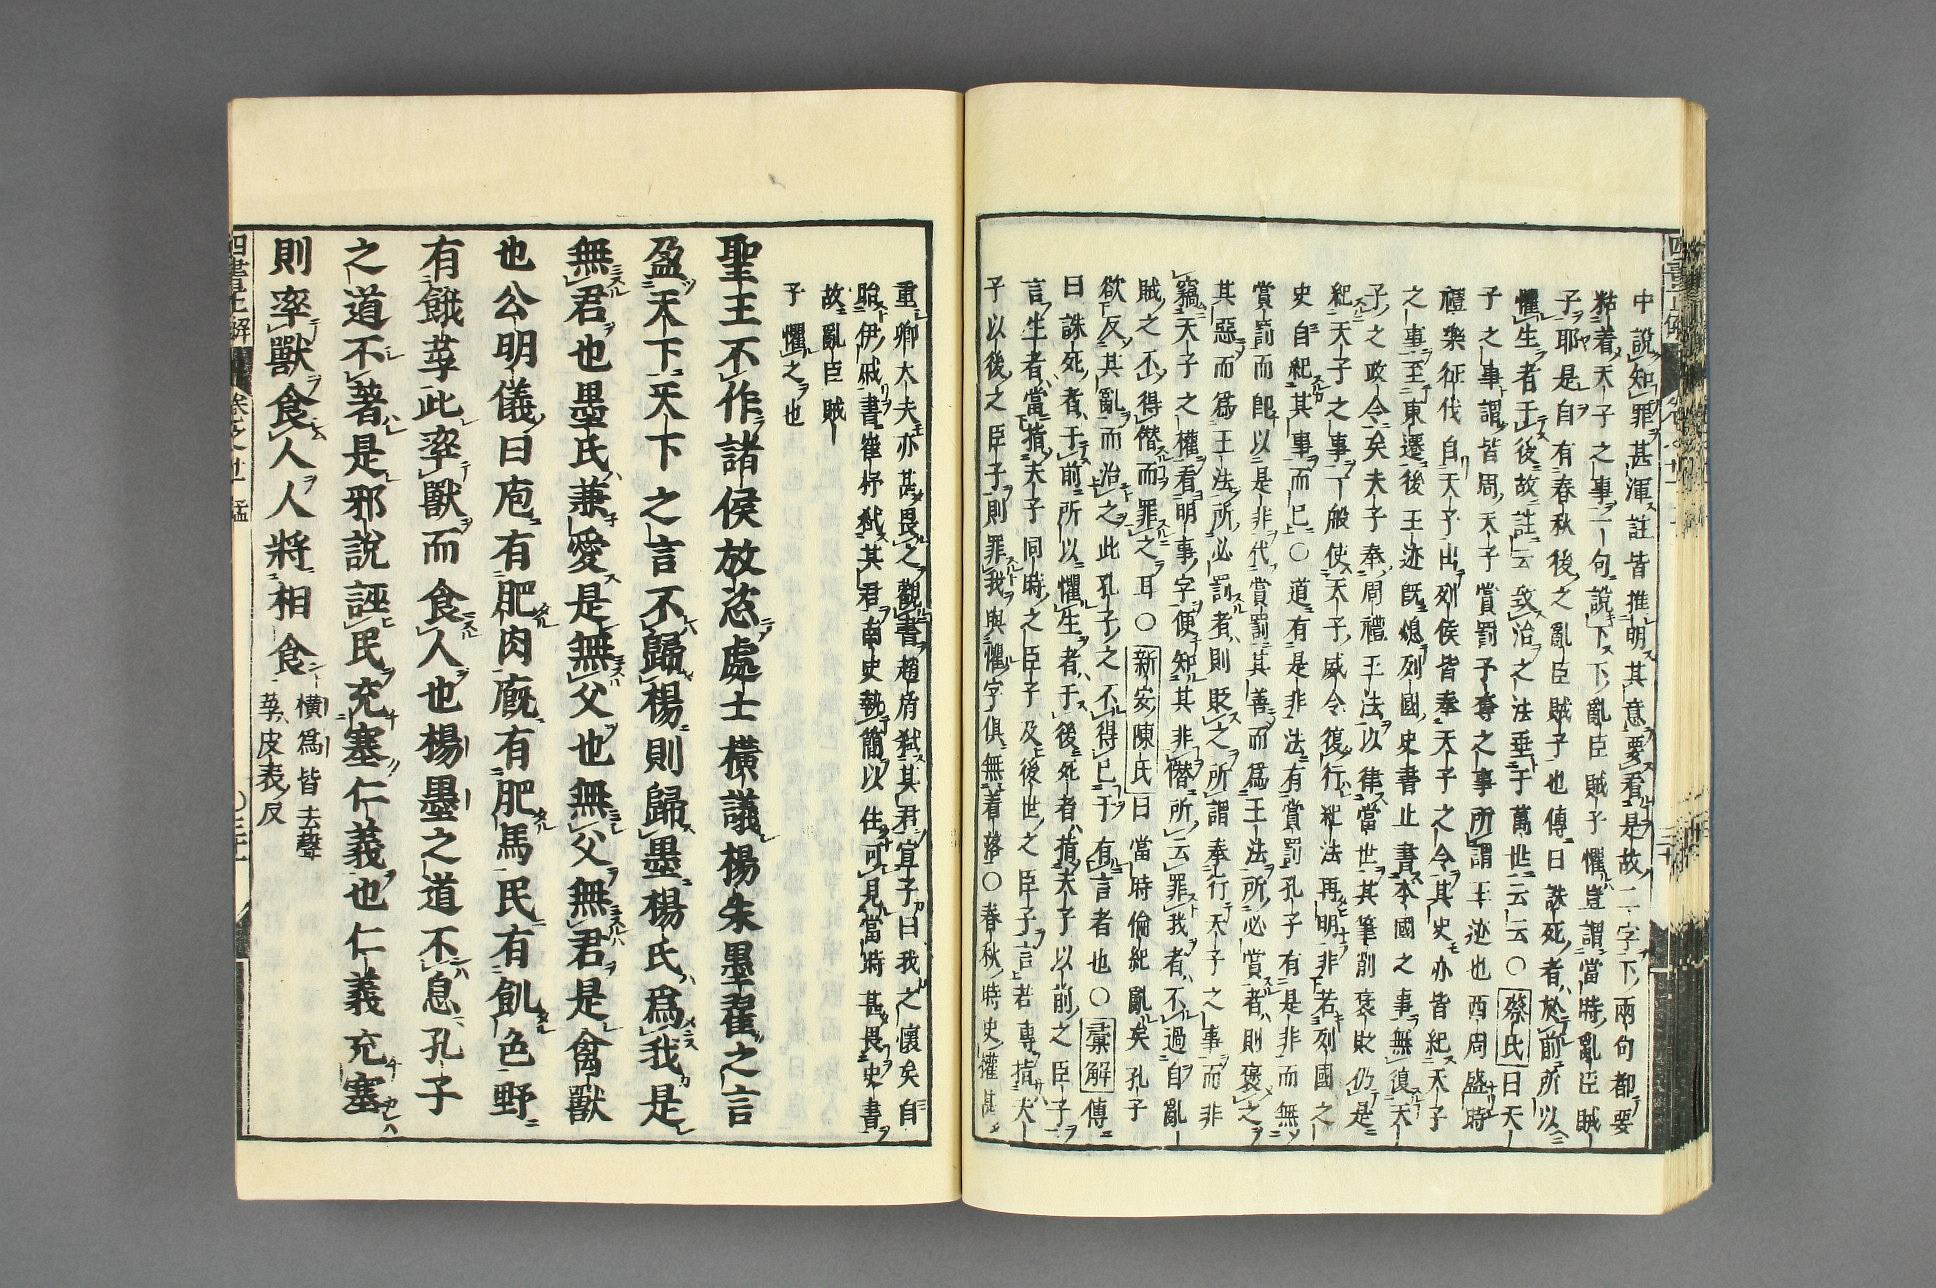 中說知罪甚渾註皆推明其意要看是故二字下兩句都要
粘着天子之事一句說下下亂臣賊子懼豈謂當時亂臣賊
子耶是自有春秋後之亂臣賊子也傳曰誅死者於前所以
懼生者于後故註云致治之法垂于萬世云云○蔡氏曰天
子之事謂皆周天子賞罰予奪之事所謂王迹也西周盛時
禮樂征伐自天子出列侯皆奉天子之令其史亦皆紀天子
之事至東遷後王迹既熄列國史書止書本國之事無復天
子之政令矣夫子奉周禮王法以律當世其筆削褒貶仍是
紀天子之事一般使天子威令復行紀法再明非若列國之
史自紀其事而已○道有是非法有賞罰孔子有是非而無
賞罰而卽以是非代賞罰其善而爲王法所必賞者則褒之
其惡而爲王法所必罰者則貶之所謂奉行天子之事而非
竊天子之權看明事字便知其非僭所云罪我者不過自亂
賊之不得僭而罪之耳○新安陳氏曰當時倫紀亂矣孔子
欲反其亂而治之此孔子之不得已于有言者也○彙解傳
曰誅死者于前所以懼生者于後死者指夫子以前之臣子
言生者當指夫子同時之臣子及後世之臣子言若專指夫
子以後之臣子則罪我與懼字俱無着落○春秋時史權甚
重卿大夫亦甚畏之觀書趙盾弑其君宣子曰我之懷矣自
貽伊戚書崔杼弑其君南史執簡以往可見當時甚畏史書
故亂臣賊
子懼之也
聖王不作諸侯放恣處士橫議楊朱墨翟之言
盈天下天下之言不歸楊則歸墨楊氏爲我是
無君也墨氏兼愛是無父也無父無君是禽獸
也公明儀曰庖有肥肉廐有肥馬民有飢色野
有餓莩此率獸而食人也楊墨之道不息孔子
之道不著是邪說誣民充塞仁義也仁義充塞
則率獸食人人將相食
橫爲皆去聲
莩皮表反
四書正解